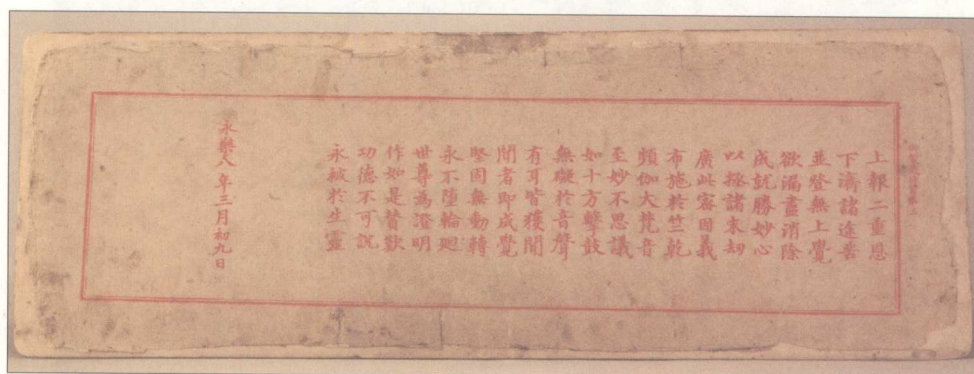 上報二重恩
下濟諸途苦
並登無上覺
欲漏盡消除
成就勝妙心
以拯諸末劫
廣此密因義
布施於竺乾
頻伽大梵音
至妙不思議
如十方擊鼓
無礙於音聲
有耳皆獲聞
聞者即成覺
堅固無動轉
永不墮輪廻
世尊為證明
作如是贊歎
功德不可說
永被於生靈
永樂八年三月初九日